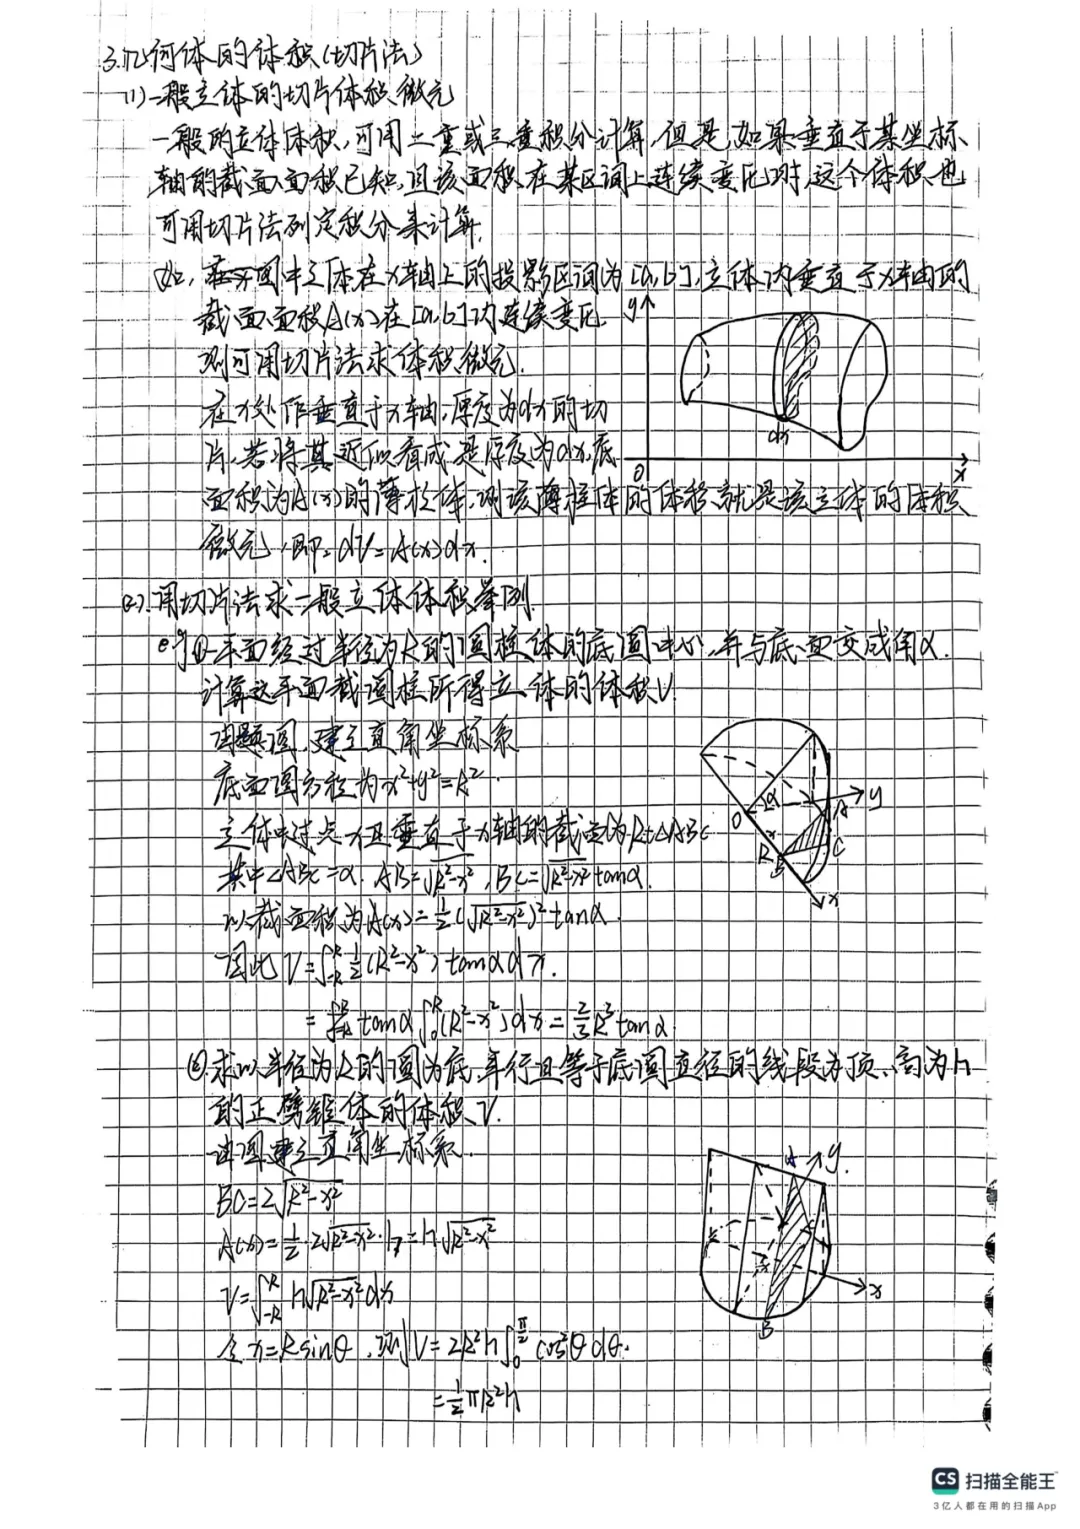 3.几何体的体积(切片法)
(1)一般立体的切片体积微元
一般的立体体积,可用二重或三重积分计算,但是,如果垂直于某坐标
轴的截面面积已知,且该面积在某区间上连续变化时,这个体积也
可用切片法列定积分来计算.
如,图中立体在x轴上的投影区间为[a,b],立体内垂直于x轴的
截面面积A(x)在[a,b]内连续变化.
则可用切片法求体积微元.
在x处作垂直于x轴,厚度为dx的切
片,若将其近似看成是厚度为dx,底
面积为A(x)的薄柱体,则该薄柱体的体积就是该立体的体积
微元,即:dV=A(x)dx.
y
dx
O
x
(2).用切片法求一般立体体积举例.
eg①一平面经过半径为R的圆柱体的底圆中心,并与底面交成角α.
计算这平面截圆柱所得立体的体积V.
由题图,建立直角坐标系
底面圆方程为x²+y²=R².
立体中过点x且垂直于x轴的截面为Rt△ABC
其中∠ABC=α. AB=√(R²-x²),BC=√(R²-x²)tanα.
以截面积为A(x)=½(√(R²-x²))²tanα.
因此V=∫_{-R}^{R}½(R²-x²)tanαdx.
=tanα∫_0^R(R²-x²)dx=⅔R³tanα.
O
α
A
y
x
R
B
C
x
②.求以半径为R的圆为底,平行且等于底圆直径的线段为顶、高为h
的正劈锥体的体积V.
由图建立直角坐标系.
BC=2√(R²-x²)
A(x)=½·2√(R²-x²)·h=h√(R²-x²)
V=∫_{-R}^{R}h√(R²-x²)dx
令x=Rsinθ,则V=2R²h∫_0^{π/2}cos²θdθ.
=½πR²h
A
y.
x
B
CS 扫描全能王
3亿人都在用的扫描App